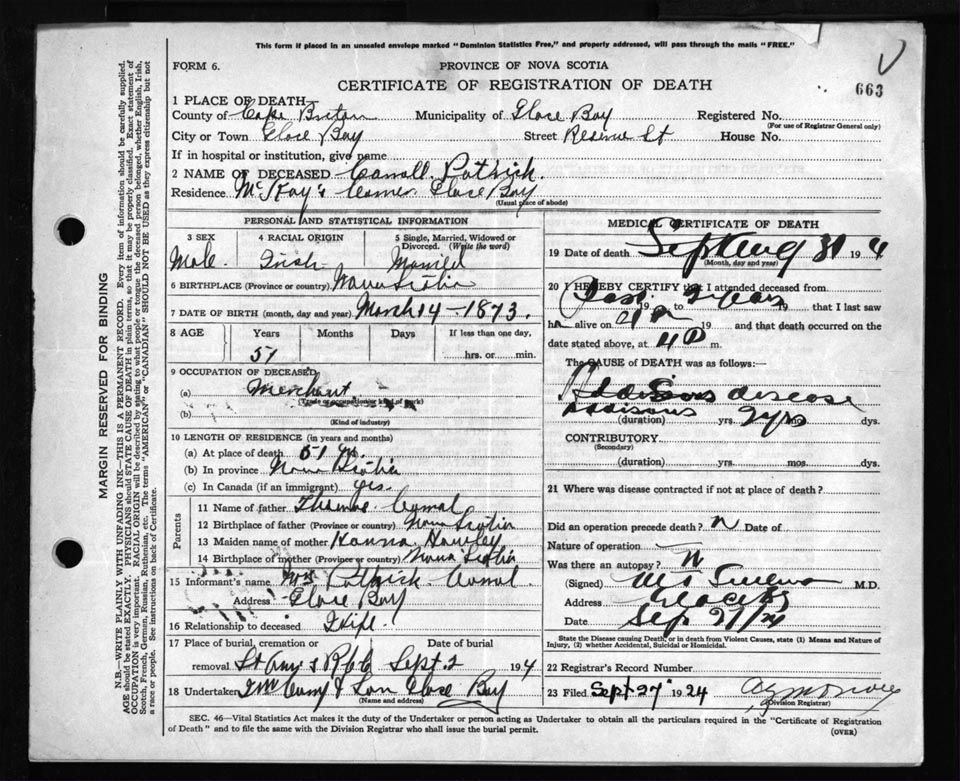 This form if placed in an unsealed envelope marked "Dominion Statistics Free," and properly addressed, will pass through the mails "FREE."
FORM 6.
PROVINCE OF NOVA SCOTIA
CERTIFICATE OF REGISTRATION OF DEATH
663
1 PLACE OF DEATH
County of Cape Breton Municipality of Glace Bay Registered No.
(For use of Registrar General only)
City or Town Glace Bay Street Reserve St House No.
If in hospital or institution, give name
2 NAME OF DECEASED Patrick.
Residence McKay's Corner Glace Bay
(Usual place of abode)
PERSONAL AND STATISTICAL INFORMATION
3 SEX 4 RACIAL ORIGIN 5 Single, Married, Widowed or Divorced. (Write the word)
Male. Irish Married
6 BIRTHPLACE (Province or country) Nova Scotia
7 DATE OF BIRTH (month, day and year) March 14 - 1873.
8 AGE Years Months Days If less than one day,
51 hrs. or min.
9 OCCUPATION OF DECEASED
(a) Merchant
(Trade or occupation or kind of work)
(b)
(Kind of industry)
10 LENGTH OF RESIDENCE (in years and months)
(a) At place of death 51 yrs.
(b) In province Nova Scotia
(c) In Canada (if an immigrant) yes.
Parents
11 Name of father
12 Birthplace of father (Province or country) Nova Scotia
13 Maiden name of mother Hanna Hawley
14 Birthplace of mother (Province or country) Nova Scotia
15 Informant's name Mrs Patrick
Address Glace Bay
16 Relationship to deceased Wife.
17 Place of burial, cremation or removal Date of burial
St Ann's Sept 2 1924
18 Undertaker & Son Glace Bay
(Name and address)
MEDICAL CERTIFICATE OF DEATH
19 Date of death Aug 31 1924
(Month, day and year)
20 I HEREBY CERTIFY that I attended deceased from
Past 2 years 19 to 19 that I last saw
h alive on 19 and that death occurred on the
date stated above, at m.
The CAUSE of DEATH was as follows:
Addisons disease
Addisons
(duration) 2 yrs mos. dys.
CONTRIBUTORY
(Secondary)
(duration) yrs. mos. dys.
21 Where was disease contracted if not at place of death?
Did an operation precede death? N Date of
Nature of operation
Was there an autopsy? N
(Signed) M.D.
Address Glace Bay
Date Sep 27/24
State the Disease causing Death, or in death from Violent Causes, state (1) Means and Nature of
Injury, (2) whether Accidental, Suicidal or Homicidal.
22 Registrar's Record Number
23 Filed Sept 27 1924
Division Registrar)
SEC. 46—Vital Statistics Act makes it the duty of the Undertaker or person acting as Undertaker to obtain all the particulars required in the "Certificate of Registration
of Death" and to file the same with the Division Registrar who shall issue the burial permit.
(OVER)
MARGIN RESERVED FOR BINDING
N.B.—WRITE PLAINLY WITH UNFADING INK—THIS IS A PERMANENT RECORD. Every item of information should be carefully supplied.
AGE should be stated EXACTLY. PHYSICIANS should STATE CAUSE OF DEATH in plain terms, so that it may be properly classified. Exact statement of
OCCUPATION is very important. RACIAL ORIGIN will be described by stating to what people or tongue the deceased person belonged, whether English, Irish,
Scotch, French, German, Russian, Ruthenian, etc. The terms "AMERICAN" or "CANADIAN" SHOULD NOT BE USED as they express citizenship but not
a race or people. See instructions on back of Certificate.